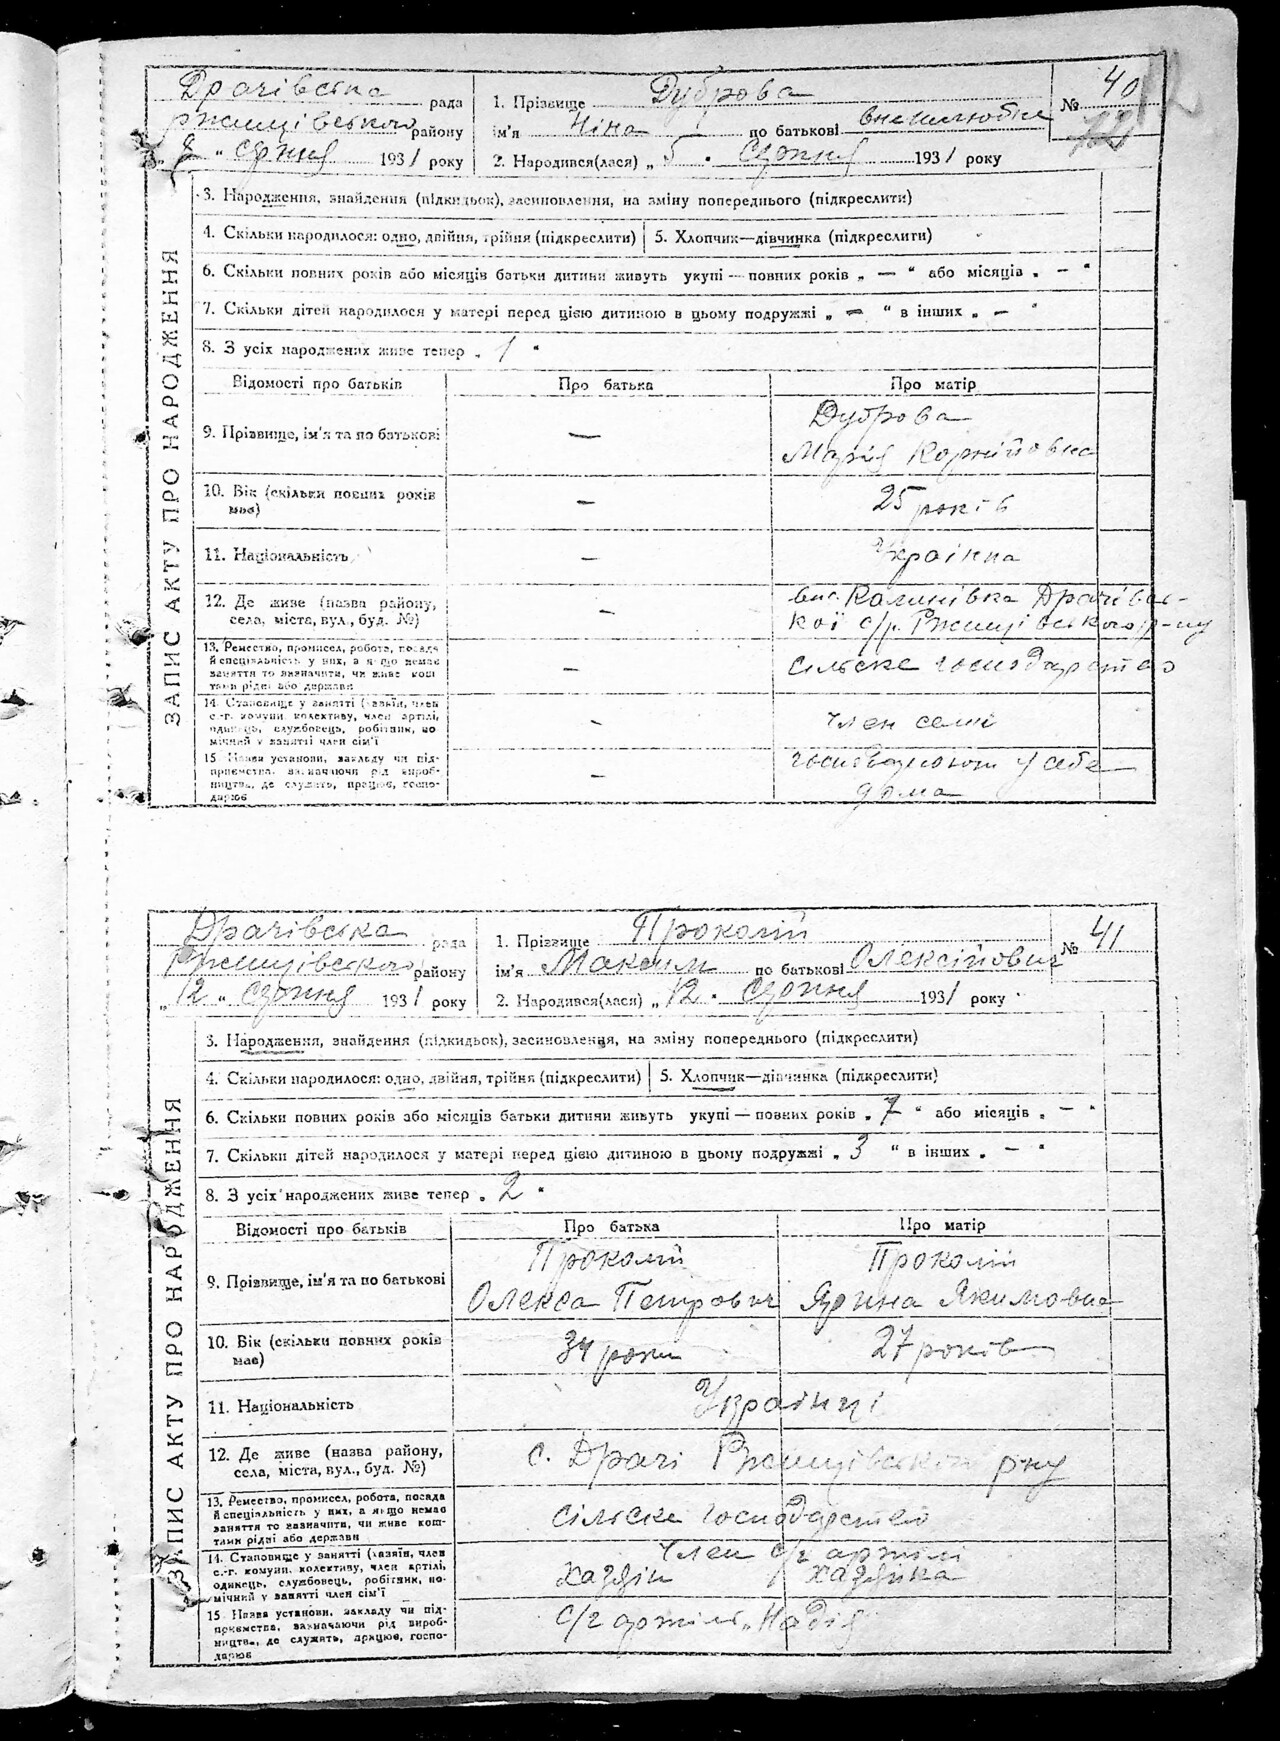 ЗАПИС АКТУ ПРО НАРОДЖЕННЯ
Драчівська рада
Ржищівського району
" серпня 1931 року
1. Прізвище Дуброва
ім'я Ніна по батькові
2. Народився(лася) „ 5 " серпня 1931 року
№ 40
72
3. Народження, знайдення (підкидьок), засиновлення, на зміну попереднього (підкреслити)
4. Скільки народилося: одно, двійня, трійня (підкреслити) 5. Хлопчик—дівчинка (підкреслити)
6. Скільки повних років або місяців батьки дитини живуть укупі — повних років „ — " або місяців „ — "
7. Скільки дітей народилося у матері перед цією дитиною в цьому подружжі „ — " в інших „ — "
8. З усіх народжених живе тепер „ 1 "
Відомості про батьків Про батька Про матір
9. Прізвище, ім'я та по батькові — Дуброва
Марія Корніївна
10. Вік (скільки повних років має) — 25 років
11. Національність — Українка
12. Де живе (назва району, села, міста, вул., буд. №) — Калинівка Драчівсь-
кої с/р. Ржищівського р-ну
13. Ремество, промисел, робота, посада й спеціяльність у них, а якщо немає заняття то зазначити, чи живе коштами рідні або держави — сільське господарство
14. Становище у занятті (хазяїн, член с.-г. комуни, колективу, член артілі, одинець, службовець, робітник, помічний у занятті член сім'ї — член семї
15. Назва установи, закладу чи підприємства, зазначаючи рід виробництва, де служить, працює, господарює — у себе
дома
ЗАПИС АКТУ ПРО НАРОДЖЕННЯ
Драчівська рада
Ржищівського району
„ 12 " серпня 1931 року
1. Прізвище Прокопій
ім'я Максим по батькові Олексійович
2. Народився(лася) „ 12 " серпня 1931 року
№ 41
3. Народження, знайдення (підкидьок), засиновлення, на зміну попереднього (підкреслити)
4. Скільки народилося: одно, двійня, трійня (підкреслити) 5. Хлопчик—дівчинка (підкреслити)
6. Скільки повних років або місяців батьки дитини живуть укупі — повних років „ 7 " або місяців „ — "
7. Скільки дітей народилося у матері перед цією дитиною в цьому подружжі „ 3 " в інших „ — "
8. З усіх народжених живе тепер „ 2 "
Відомості про батьків Про батька Про матір
9. Прізвище, ім'я та по батькові Прокопій Прокопій
Олекса Петрович Ярина Якимовна
10. Вік (скільки повних років має) 34 роки 27 років
11. Національність Українці
12. Де живе (назва району, села, міста, вул., буд. №) с. Драчі Ржищівського р-ну
13. Ремество, промисел, робота, посада й спеціяльність у них, а якщо немає заняття то зазначити, чи живе коштами рідні або держави сільське господарство
14. Становище у занятті (хазяїн, член с.-г. комуни, колективу, член артілі, одинець, службовець, робітник, помічний у занятті член сім'ї Член с/г артілі
хазяїн хазяйка
15. Назва установи, закладу чи підприємства, зазначаючи рід виробництва, де служить, працює, господарює с/г артіль „Надія